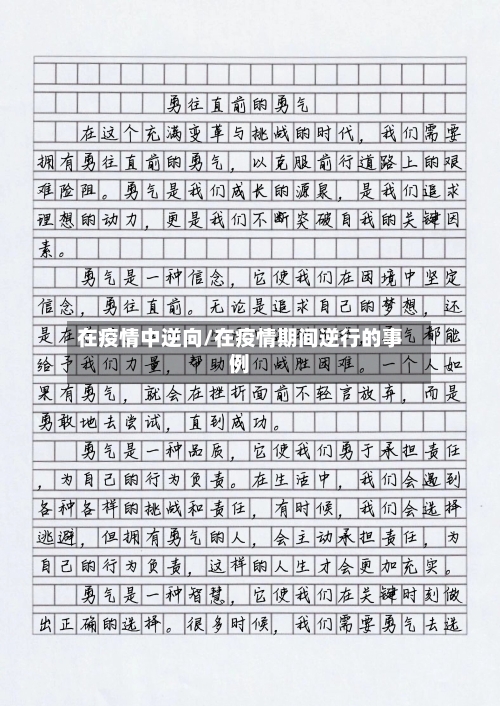 勇往直前的勇气
在这个充满变革与挑战的时代，我们需要
拥有勇往直前的勇气，以克服前行道路上的艰
难险阻。勇气是我们成长的源泉，是我们追求
理想的动力，更是我们不断突破自我的关键因
素。
勇气是一种信念，它使我们在困境中坚定
信念，勇往直前。无论是追求自己的梦想，还
是在
气都能
在疫情中逆向/在疫情期间逆行的事
例
给予我们力量，帮助我们战胜困难。一个人如
果有勇气，就会在挫折面前不轻言放弃，而是
勇敢地去尝试，直到成功。
勇气是一种品质，它使我们勇于承担责任
，为自己的行为负责。在生活中，我们会遇到
各种各样的挑战和责任，有时候，我们会选择
逃避，但拥有勇气的人，会主动承担责任，为
自己的行为负责，这样的人生才会更加充实。
勇气是一种智慧，它使我们在关键时刻做
出正确的选择。很多时候，我们需要勇气去选